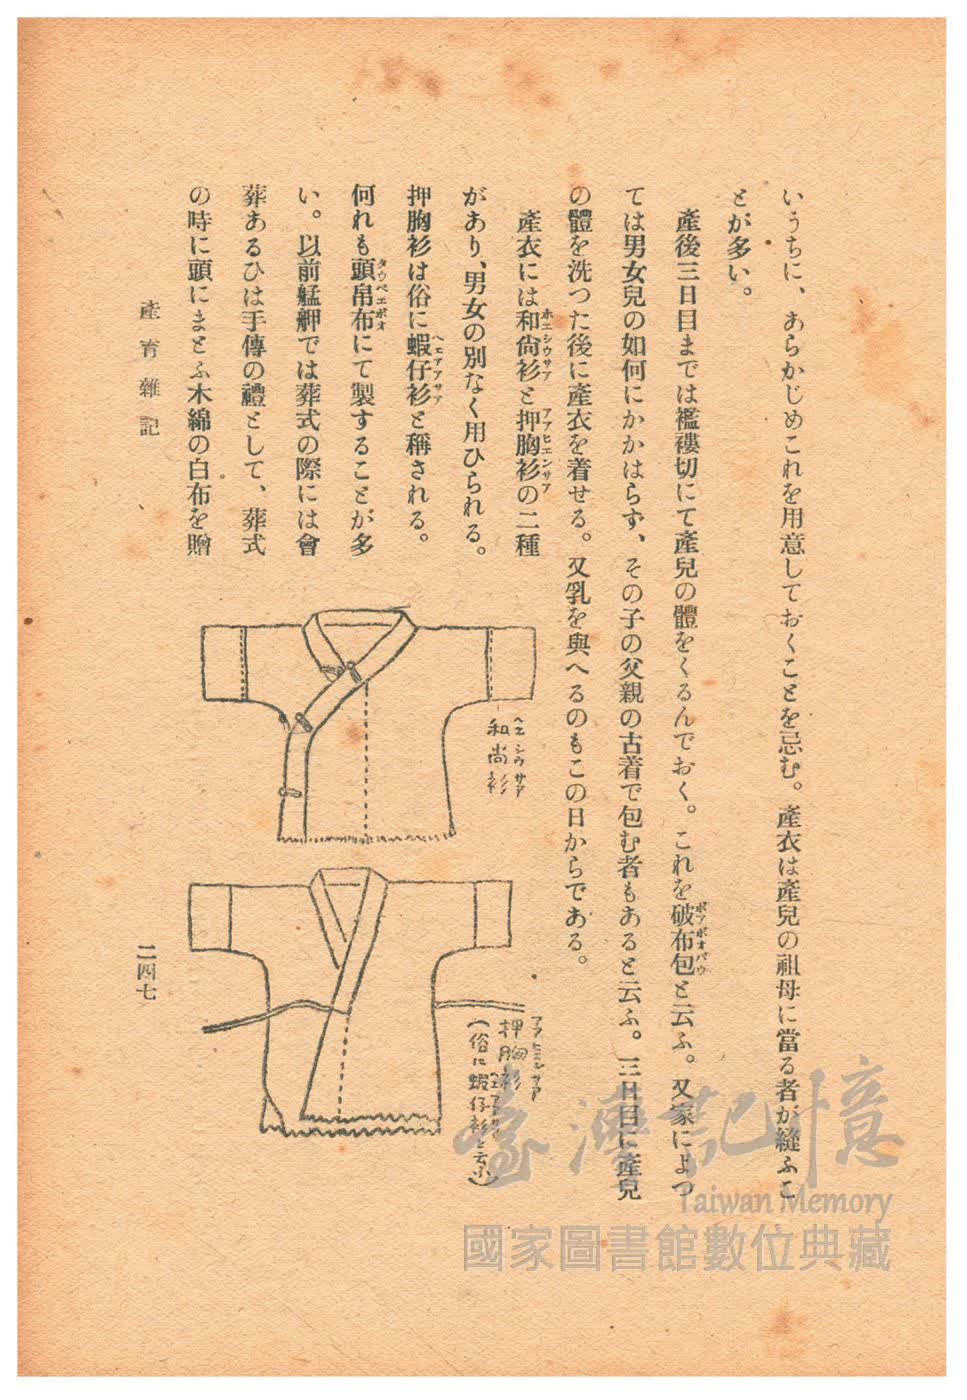 いうちに、あらかじめこれを用意しておくことを忌む。產衣は產兒の祖母に當る者が縫ふこ
とが多い。
產後三日目までは襤褸切にて產兒の體をくるんでおく。これを破布包と云ふ。又家によつ
ポアポオパウ
ては男女兒の如何にかかはらず、その子の父親の古着で包む者もあると云ふ。三日目に產兒
の體を洗つた後に產衣を着せる。又乳を與へるのもこの日からである。
產衣には和尙衫と押胸衫の二種
ホエシウサア
アアヒエンサア
があり、男女の別なく用ひられる。
押胸衫は俗に蝦仔衫と稱される。
ヘエアアサア
何れも頭帛布にて製することが多
タウベエポオ
い。以前艋舺では葬式の際には會
葬あるひは手傳の禮として、葬式
の時に頭にまとふ木綿の白布を贈
產育雜記
二四七
和尚衫
押胸衫
(俗に蝦仔衫と云ふ)
臺灣記憶
Taiwan Memory
國家圖書館數位典藏